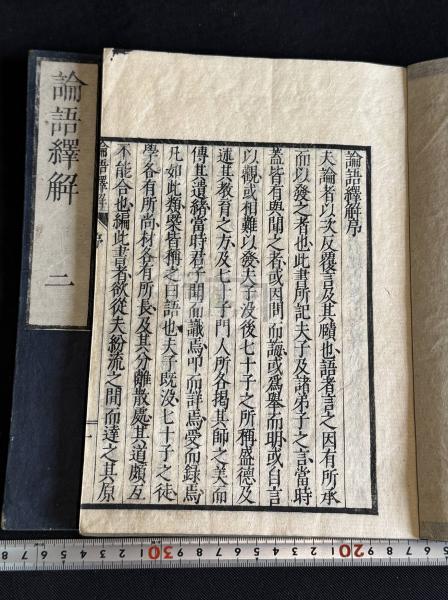 論語繹解序
夫論者以次反覆言及其隨也語者言之因有所承
而以發之者也此書所記夫子及諸弟子之言當時
蓋皆有與聞之者或因問而誨或爲舉而明或自言
以觀或相難以發夫子没後七十子之所稱盛德及
述其教育之方及七十子門人所各揭其師之美而
傳其遺緒當時君子聞而識焉叩而詳焉受而録焉
凡如此類槩皆稱之曰語也夫子既没七十子之徒
學各有所尚材各有所長及其分離散處其道頗互
不能合也編此書者欲從夫紛流之間而達之其原
論語繹解
序
一
論語繹解 二